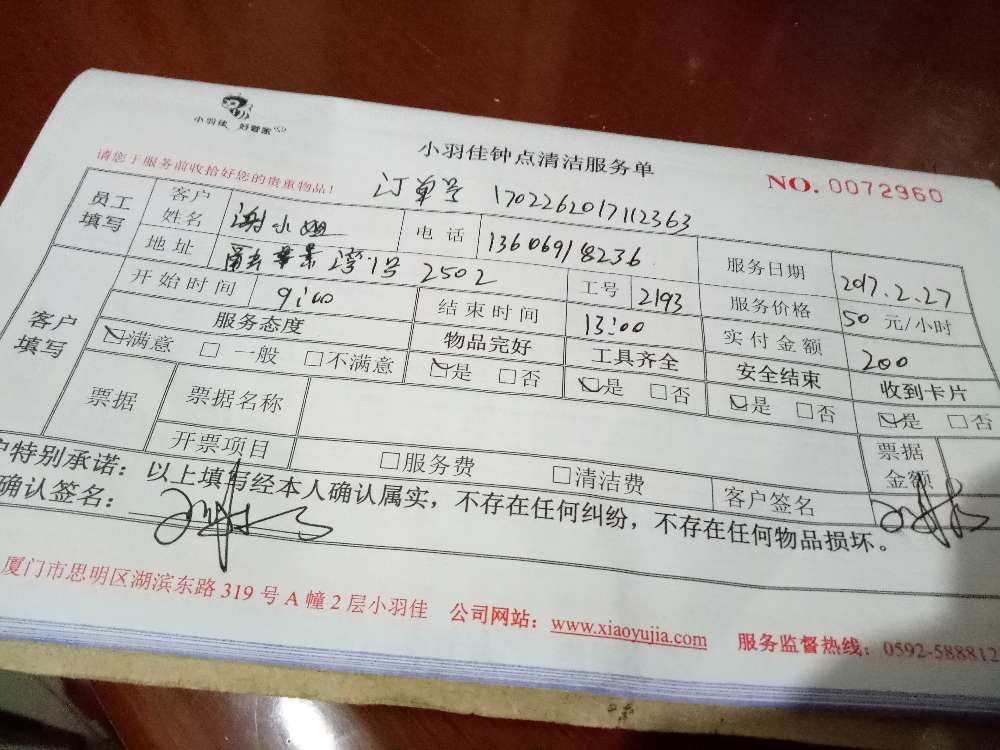 小羽佳 好管家
小羽佳钟点清洁服务单
请您于服务前收拾好您的贵重物品！
NO. 0072960
订单号 1702262017112363
员工填写 客户姓名 谢小姐 电话 13606918236 服务日期 2017.2.27
地址 景湾1号 2502 工号 2193 服务价格 50 元/小时
客户填写 开始时间 9:00 结束时间 13:00 实付金额 200
服务态度 物品完好 工具齐全 安全结束 收到卡片
☑满意 □一般 □不满意 ☑是 □否 ☑是 □否 ☑是 □否 ☑是 □否
票据 票据名称
开票项目 □服务费 □清洁费 票据金额
客户签名
户特别承诺：以上填写经本人确认属实，不存在任何纠纷，不存在任何物品损坏。
确认签名：
厦门市思明区湖滨东路 319 号 A 幢 2 层小羽佳 公司网站：www.xiaoyujia.com 服务监督热线：0592-588812